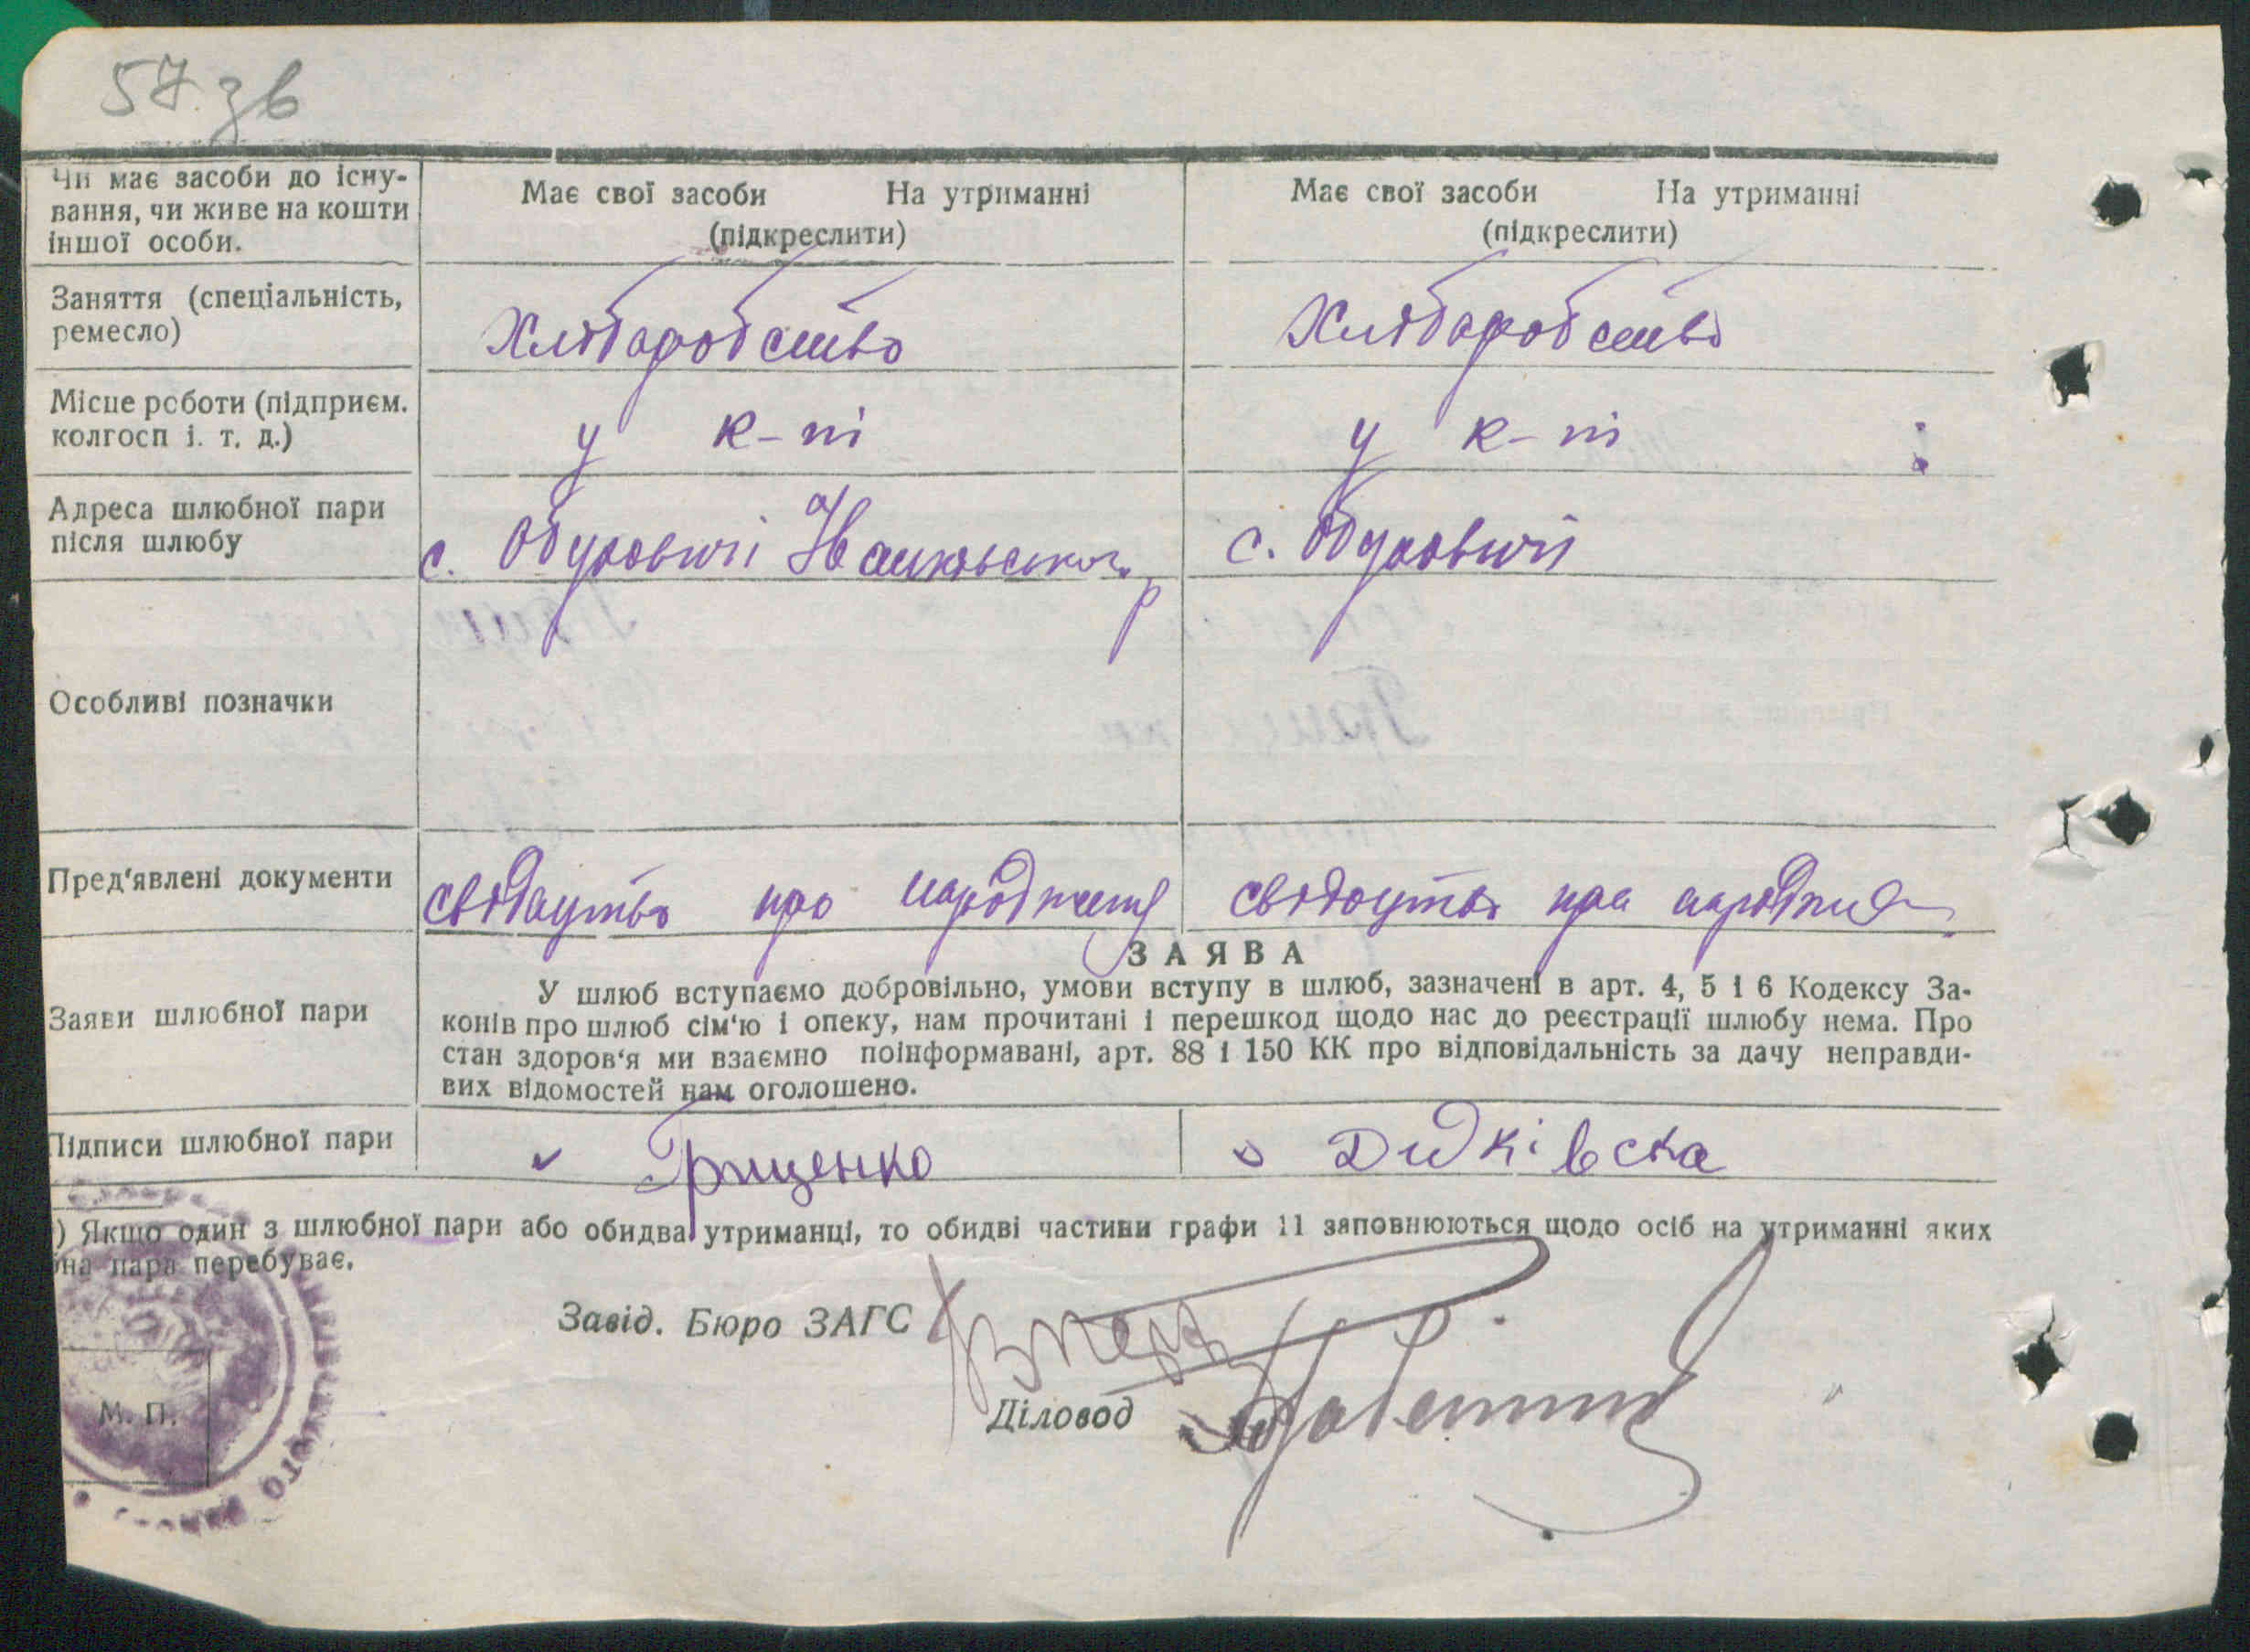 57 зв
Чи має засоби до існу-
вання, чи живе на кошти
іншої особи.
Має свої засоби На утриманні
(підкреслити)
Має свої засоби На утриманні
(підкреслити)
Заняття (спеціальність,
ремесло)
Хліборобство
Хліборобство
Місце роботи (підприєм.
колгосп і. т. д.)
у к-пі
у к-пі
Адреса шлюбної пари
після шлюбу
с. Обуховичі Іванківського р
с. Обуховичі
Особливі позначки
Пред'явлені документи
свідоцтво про народження
свідоцтво про
ЗАЯВА
Заяви шлюбної пари
У шлюб вступаємо добровільно, умови вступу в шлюб, зазначені в арт. 4, 5 і 6 Кодексу За-
конів про шлюб сім'ю і опеку, нам прочитані і перешкод щодо нас до реєстрації шлюбу нема. Про
стан здоров'я ми взаємно поінформавані, арт. 88 і 150 КК про відповідальність за дачу неправди-
вих відомостей нам оголошено.
Підписи шлюбної пари
Грищенко
Дидківска
) Якщо один з шлюбної пари або обидва утриманці, то обидві частини графи 11 заповнюються щодо осіб на утриманні яких
пара перебуває.
Завід. Бюро ЗАГС
Діловод
М. П.